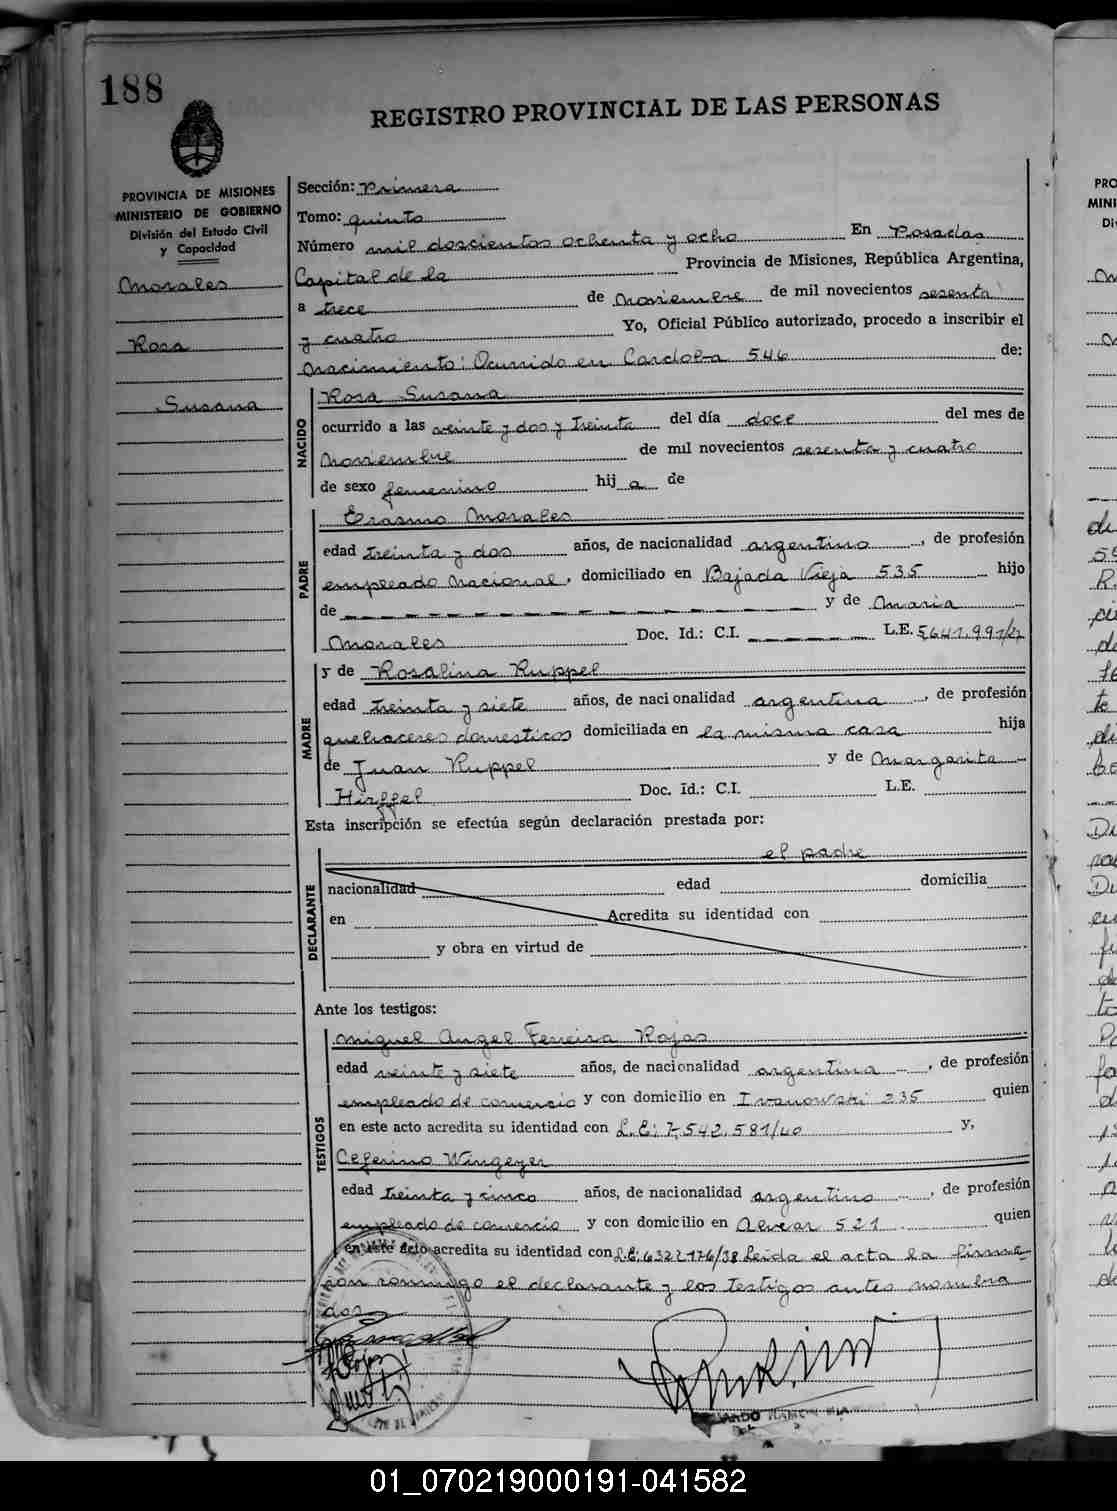 188
REGISTRO PROVINCIAL DE LAS PERSONAS
PROVINCIA DE MISIONES
MINISTERIO DE GOBIERNO
División del Estado Civil
y Capacidad
Morales
Rosa
Susana
Sección: Primera
Tomo: quinto
Número mil doscientos ochenta y ocho En Posadas
Capital de la Provincia de Misiones, República Argentina,
a trece de Noviembre de mil novecientos sesenta
y cuatro Yo, Oficial Público autorizado, procedo a inscribir el
Nacimiento: Ocurrido en Cordoba 546 de:
NACIDO
Rosa Susana
ocurrido a las veinte y dos y treinta del día doce del mes de
Noviembre de mil novecientos sesenta y cuatro
de sexo femenino hij a de
PADRE
Erasmo Morales
edad treinta y dos años, de nacionalidad argentino, de profesión
empleado Nacional, domiciliado en Bajada Vieja 535 hijo
de y de Maria
Morales Doc. Id.: C.I. L.E. 5641.991/27
MADRE
y de Rosalina Ruppel
edad treinta y siete años, de nacionalidad argentina, de profesión
quehaceres domesticos domiciliada en la misma casa hija
de Juan Ruppel y de Margarita
Hirffel Doc. Id.: C.I. L.E.
Esta inscripción se efectúa según declaración prestada por:
DECLARANTE
el padre
nacionalidad edad domicilia
en Acredita su identidad con
y obra en virtud de
Ante los testigos:
TESTIGOS
Miguel Angel Ferreira Rojas
edad veinte y siete años, de nacionalidad argentina, de profesión
empleado de comercio y con domicilio en Ivanowski 235 quien
en este acto acredita su identidad con L.E: 7,542.581/40 y,
Ceferino Wingeyer
edad treinta y cinco años, de nacionalidad argentino, de profesión
empleado de comercio y con domicilio en Alvear 521 quien
en este acto acredita su identidad con L.E: 6322176/38 Leida el acta la firma
con conmigo el declarante y los testigos antes nombra
dos
01_070219000191-041582